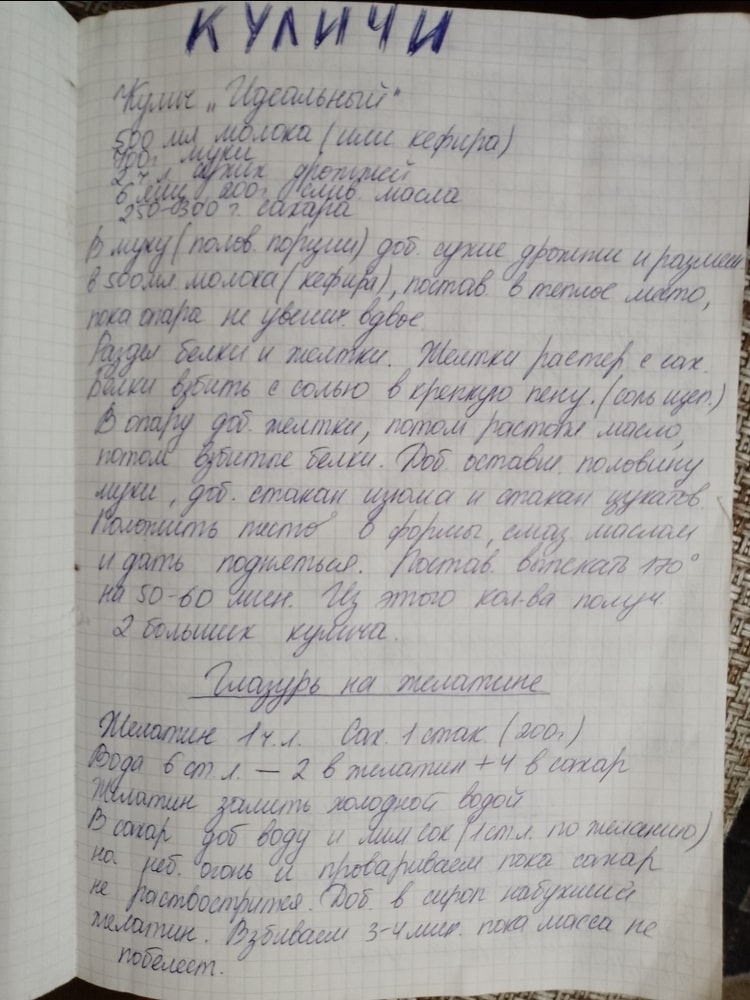 КУЛИЧИ
Кулич „Идеальный"
500 мл молока (или кефира)
700г муки
2 ч л сухих дрожжей
6 яиц 200г слив. масла
250-300 г. сахара
В муку (полов. порции) доб. сухие дрожжи и размеш
в 500мл. молока (кефира), постав. в теплое место,
пока опара не увелич. вдвое.
Раздел белки и желтки. Желтки растер. с сах.
Белки взбить с солью в крепкую пену. (соль щеп.)
В опару доб. желтки, потом растопл масло,
потом взбитые белки. Доб. оставш. половину
муки, доб. стакан изюма и стакан цукатов.
Положить тесто в формы, смаз маслом
и дать подняться. Постав. выпекать 170°
на 50-60 мин. Из этого кол-ва получ.
2 больших кулича.
Глазурь на желатине
Желатин 1 ч. л. Сах. 1 стак (200г)
Вода 6 ст. л. — 2 в желатин + 4 в сахар
Желатин залить холодной водой
В сахар доб воду и лим сок (1 ст.л. по желанию)
на неб. огонь и провариваем пока сахар
не раствострится. Доб. в сироп набухший
желатин. Взбиваем 3-4 мин. пока масса не
побелеет.